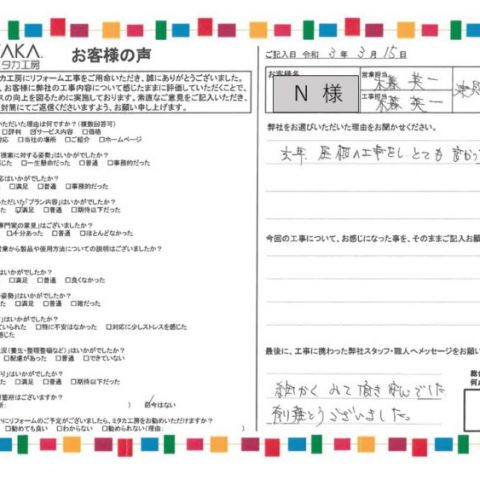 TAKA
ミタカ工房
お客様の声
カ工房にリフォーム工事をご用命いただき、誠にありがとうございました。
、お客様に弊社の工事内容について感じたままに評価していただくことで、
スの向上を図るために実施しております。素直なご意見をご記入いただき、
封筒にてご返信くださいますよう、お願い申し上げます。
いただいた理由は何ですか？(複数回答可)
□評判 ☑サービス内容 □価格
対応 □当社の場所 □ご紹介 □ホームページ
提案に対する姿勢」はいかがでしたか？
じた □一生懸命だった □普通 □事務的だった
応はいかがでしたか？
た □満足 □普通 □事務的だった
いただいた「プラン内容」はいかがでしたか？
た ☑満足 □普通 □期待以下だった
専門家の意見」はございましたか？
□十分あった □普通 □ほとんどなかった
営業から製品や使用方法についての説明はございましたか？
はいかがでしたか？
□満足 □普通 □良くなかった
姿勢」はいかがでしたか？
□満足 □普通 □雑だった
いかがでしたか？
ていられた □特に不安はなかった □対応に少しストレスを感じた
感じた
状況(養生・整理整頓など)」はいかがでしたか？
□配慮があった □普通 □できていない
り」はいかがでしたか？
た □満足 □普通 □期待以下だった
箇所はございますか？
) ☑今はない
いにリフォームのご予定がございましたら、ミタカ工房をお勧めいただけますか？
□勧めても良い □わからない □勧められない(理由:
ご記入日 令和 3 年 3 月 15 日
お客様名
N 様
営業担当
工事担当
弊社をお選びいただいた理由をお聞かせください。
今回の工事について、お感じになった事を、そのままご記入お願
最後に、工事に携わった弊社スタッフ・職人へメッセージをお願い
細かく みて頂き
有難とうございました。